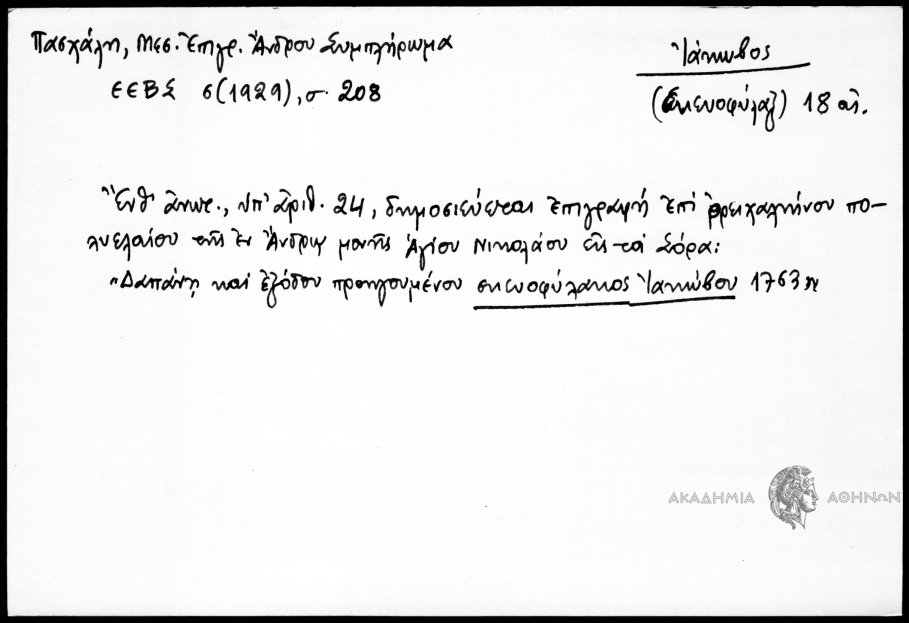 Πασχάλη, Μεσ. Ἐπιγρ. Ἄνδρου Συμπλήρωμα
ΕΕΒΣ 6(1929), σ. 208
Ἰάκωβος
(Σκευοφύλαξ) 18 αἰ.
Ἔνθ' ἀνωτ., ὑπ' ἀριθ. 24, δημοσιεύεται ἐπιγραφή ἐπί ὀρειχαλκίνου πο-
λυελαίου τῆς ἐν Ἄνδρῳ μονῆς Ἁγίου Νικολάου εἰς τά Σόρα:
"Δαπάνῃ καί ἐξόδου προηγουμένου σκευοφύλακος Ἰακώβου 1763"
ΑΚΑΔΗΜΙΑ ΑΘΗΝΩΝ